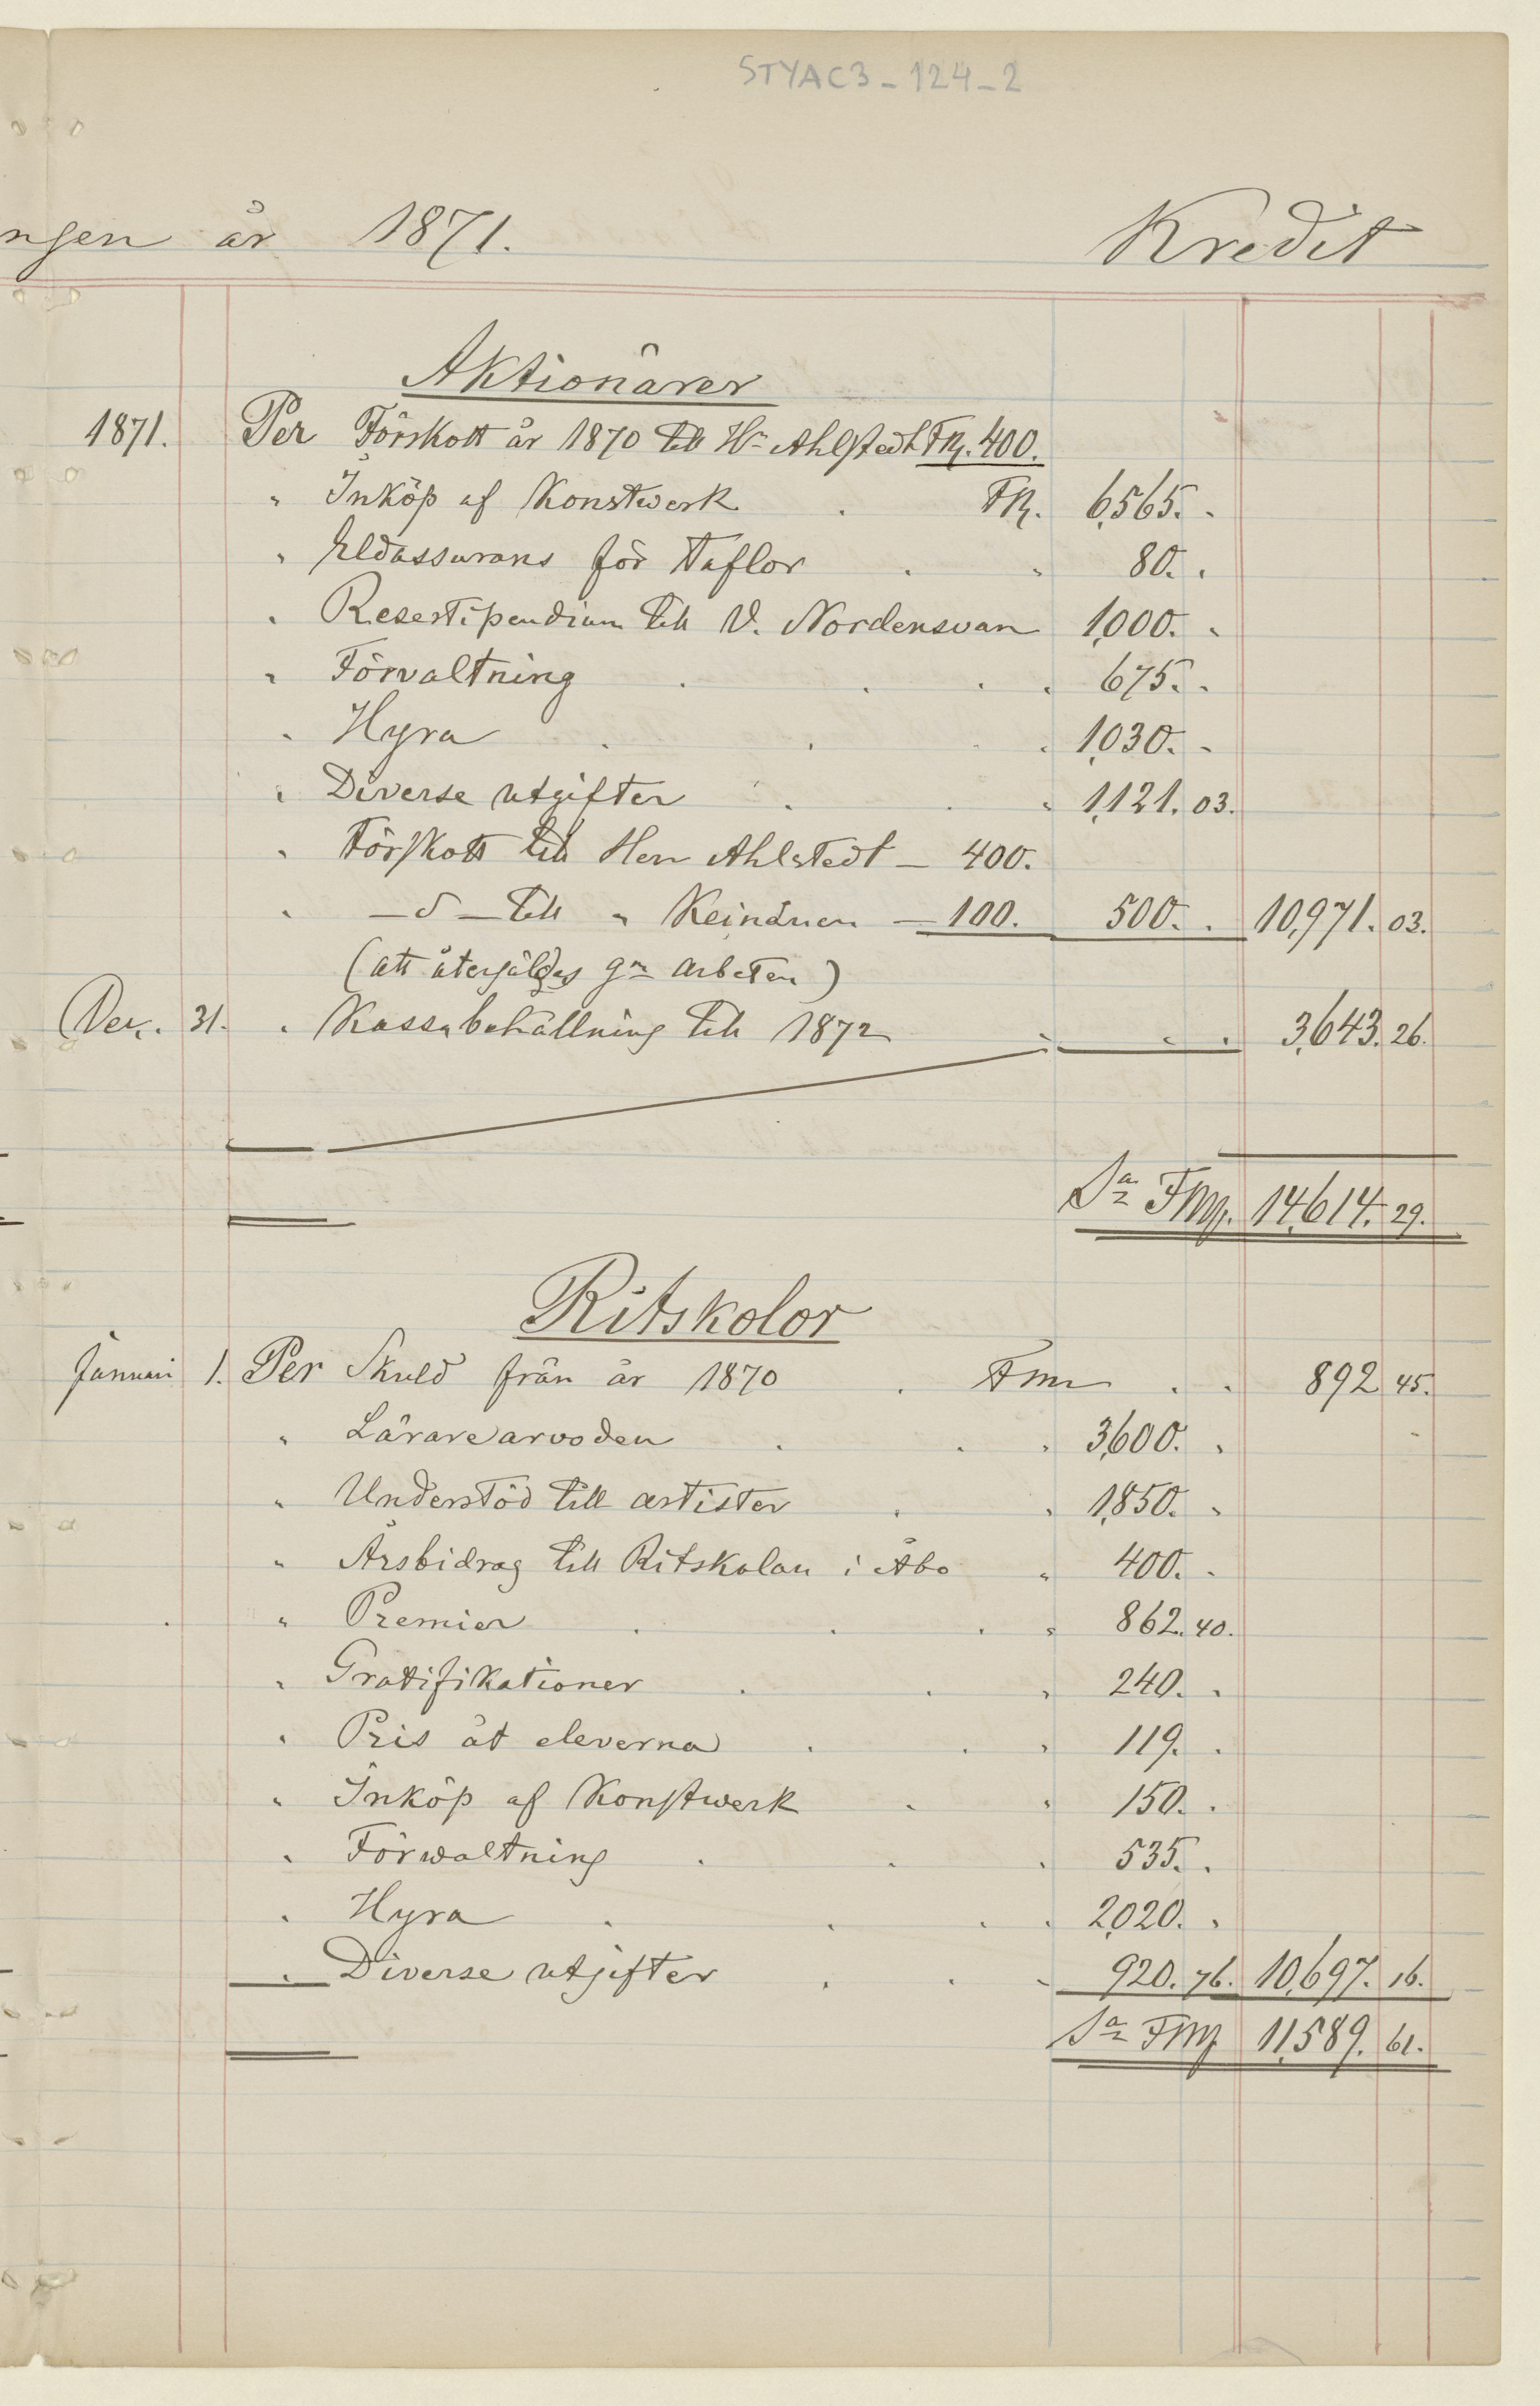 STYAC3-124-2
ngen år 1871. Kredit
Aktionärer
1871. Per Förskott år 1870 till Hr Ahlstedt FM. 400.
" Inköp af Konstwerk . FM. 6,565. "
" Eldassurans för taflor . " 80. "
" Resestipendium till V. Nordensvan 1,000. "
" Förvaltning . . . " 675. "
" Hyra . . . " 1,030. "
" Diverse utgifter . . " 1,121. 03.
" Förskott till Herr Ahlstedt — 400.
" —d— till " Keinänen — 100. 500. " 10,971. 03.
(att återgäldas gm arbeten)
Dec. 31. " Kassabehållning till 1872 " " " 3,643. 26.
Sa FMk. 14,614. 29.
Ritskolor
Januari 1. Per Skuld från år 1870 . Fmk . . 892 45.
" Lärarearvoden . . " 3,600. "
" Understöd till artister . " 1,850. "
" Årsbidrag till Ritskolan i Åbo " 400. "
" Premier . . . " 862. 40.
" Gratifikationer . . " 240. "
" Pris åt eleverna . . " 119. "
" Inköp af Konstwerk . " 150. "
" Förwaltning . . " 535. "
" Hyra . . . " 2,020. "
" Diverse utgifter . . " 920. 76. 10,697. 16.
Sa FMk 11,589. 61.